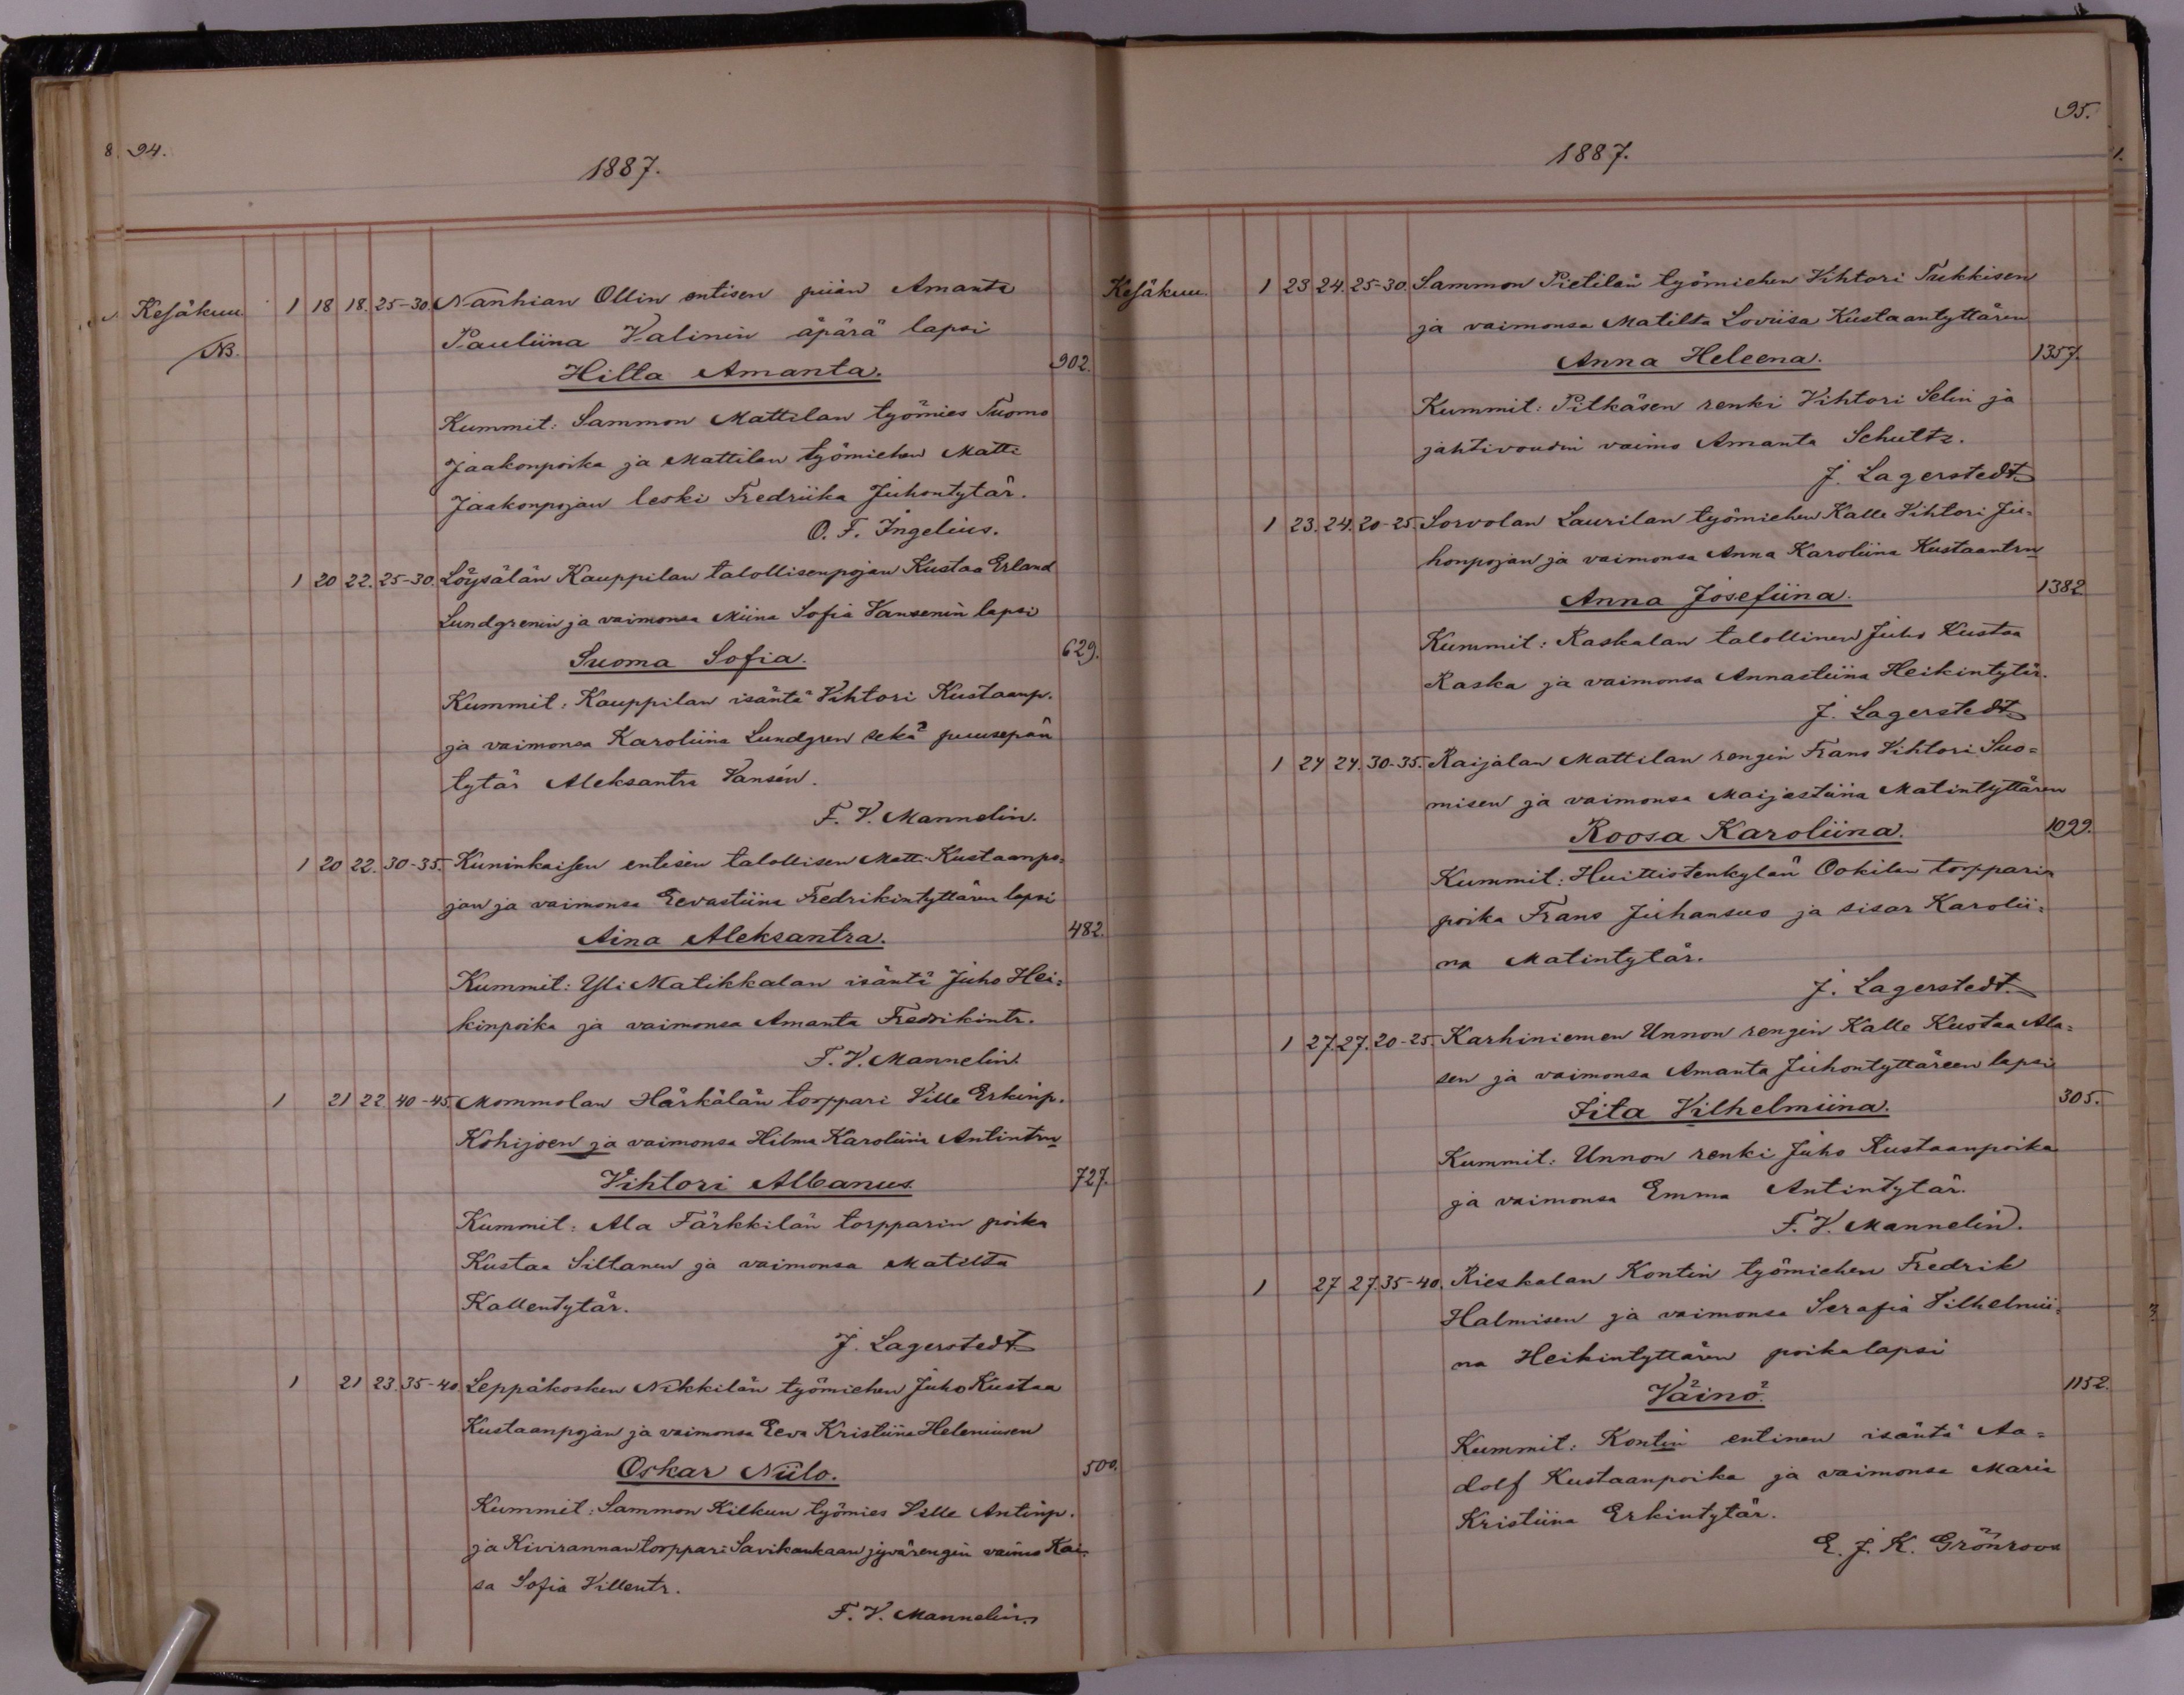 94.
1887.
Kesäkuu. 1 18 18. 25-30. Nanhian Ollin entisen piian Amanta
NB. Pauliina Valinin äpärä lapsi
Hilta Amanta. 902.
Kummit: Sammon Mattilan työmies Tuomo
Jaakonpoika ja Mattilan työmiehen Matti
Jaakonpojan leski Fredriika Juhontytär.
O. F. Ingelius.
1 20 22. 25-30. Löysälän Kauppilan talollisenpojan Kustaa Erland
Lundgrenin ja vaimonsa Miina Sofia Vansenin lapsi
Suoma Sofia. 629.
Kummit: Kauppilan isäntä Vihtori Kustaanp.
ja vaimonsa Karoliina Lundgren sekä puusepän
tytär Aleksantra Vansén.
F. V. Mannelin.
1 20 22. 30-35. Kuninkaisen entisen talollisen Matti Kustaanpo=
jan ja vaimonsa Eevastiina Fredrikintyttären lapsi
Aina Aleksantra. 482.
Kummit: Yli Matikkalan isäntä Juho Hei=
kinpoika ja vaimonsa Amanta Fredrikintr.
F. V. Mannelin.
1 21 22 40-45. Mommolan Härkälän torppari Ville Erkinp.
Kohijoen ja vaimonsa Hilma Karoliina Antintrn
Vihtori Albanus. 727.
Kummit: Ala Färkkilän torpparin poika
Kustaa Siltanen ja vaimonsa Matilta
Kallentytär.
J. Lagerstedt
1 21 23. 35-40. Leppäkosken Nikkilän työmiehen Juho Kustaa
Kustaanpojan ja vaimonsa Eeva Kristiina Heleniusen
Oskar Niilo. 500.
Kummit: Sammon Kilkun työmies Ville Antinp.
ja Kivirannan torppari Savikankaan jyvärengin vaimo Kai-
sa Sofia Villentr.
F. V. Mannelin.
95.
1887.
Kesäkuu. 1 23 24. 25-30. Sammon Pietilän työmiehen Vihtori Tukkisen
ja vaimonsa Matilta Loviisa Kustaantyttären
Anna Heleena. 1357.
Kummit: Pitkäsen renki Vihtori Selin ja
jahtivoudin vaimo Amanta Schultz.
J. Lagerstedt
1 23. 24. 20-25. Sorvolan Laurilan työmiehen Kalle Vihtori Ju=
honpojan ja vaimonsa Anna Karoliina Kustaantrn
Anna Josefiina. 1382
Kummit: Raskalan talollinen Juho Kustaa
Raska ja vaimonsa Annastiina Heikintytär.
J. Lagerstedt
1 24 24. 30-35. Raijalan Mattilan rengin Frans Vihtori Suo=
misen ja vaimonsa Maijastiina Matintyttären
Roosa Karoliina. 1099.
Kummit: Huittistenkylän Ookilan torpparin
poika Frans Juhansuo ja sisar Karolii=
na Matintytär.
J. Lagerstedt.
1 27. 27. 20-25. Karhiniemen Unnon rengin Kalle Kustaa Ala=
sen ja vaimonsa Amanta Juhontyttäreen lapsi
Iita Vilhelmiina. 305.
Kummit: Unnon renki Juho Kustaanpoika
ja vaimonsa Emma Antintytär.
F. V. Mannelin.
1 27 27. 35-40. Rieskalan Kontin työmiehen Fredrik
Halmisen ja vaimonsa Serafia Vilhelmii=
na Heikintyttären poikalapsi
Väinö. 1152.
Kummit: Kontin entinen isäntä Aa=
dolf Kustaanpoika ja vaimonsa Maria
Kristiina Erkintytär.
E. J. K. Grönroos